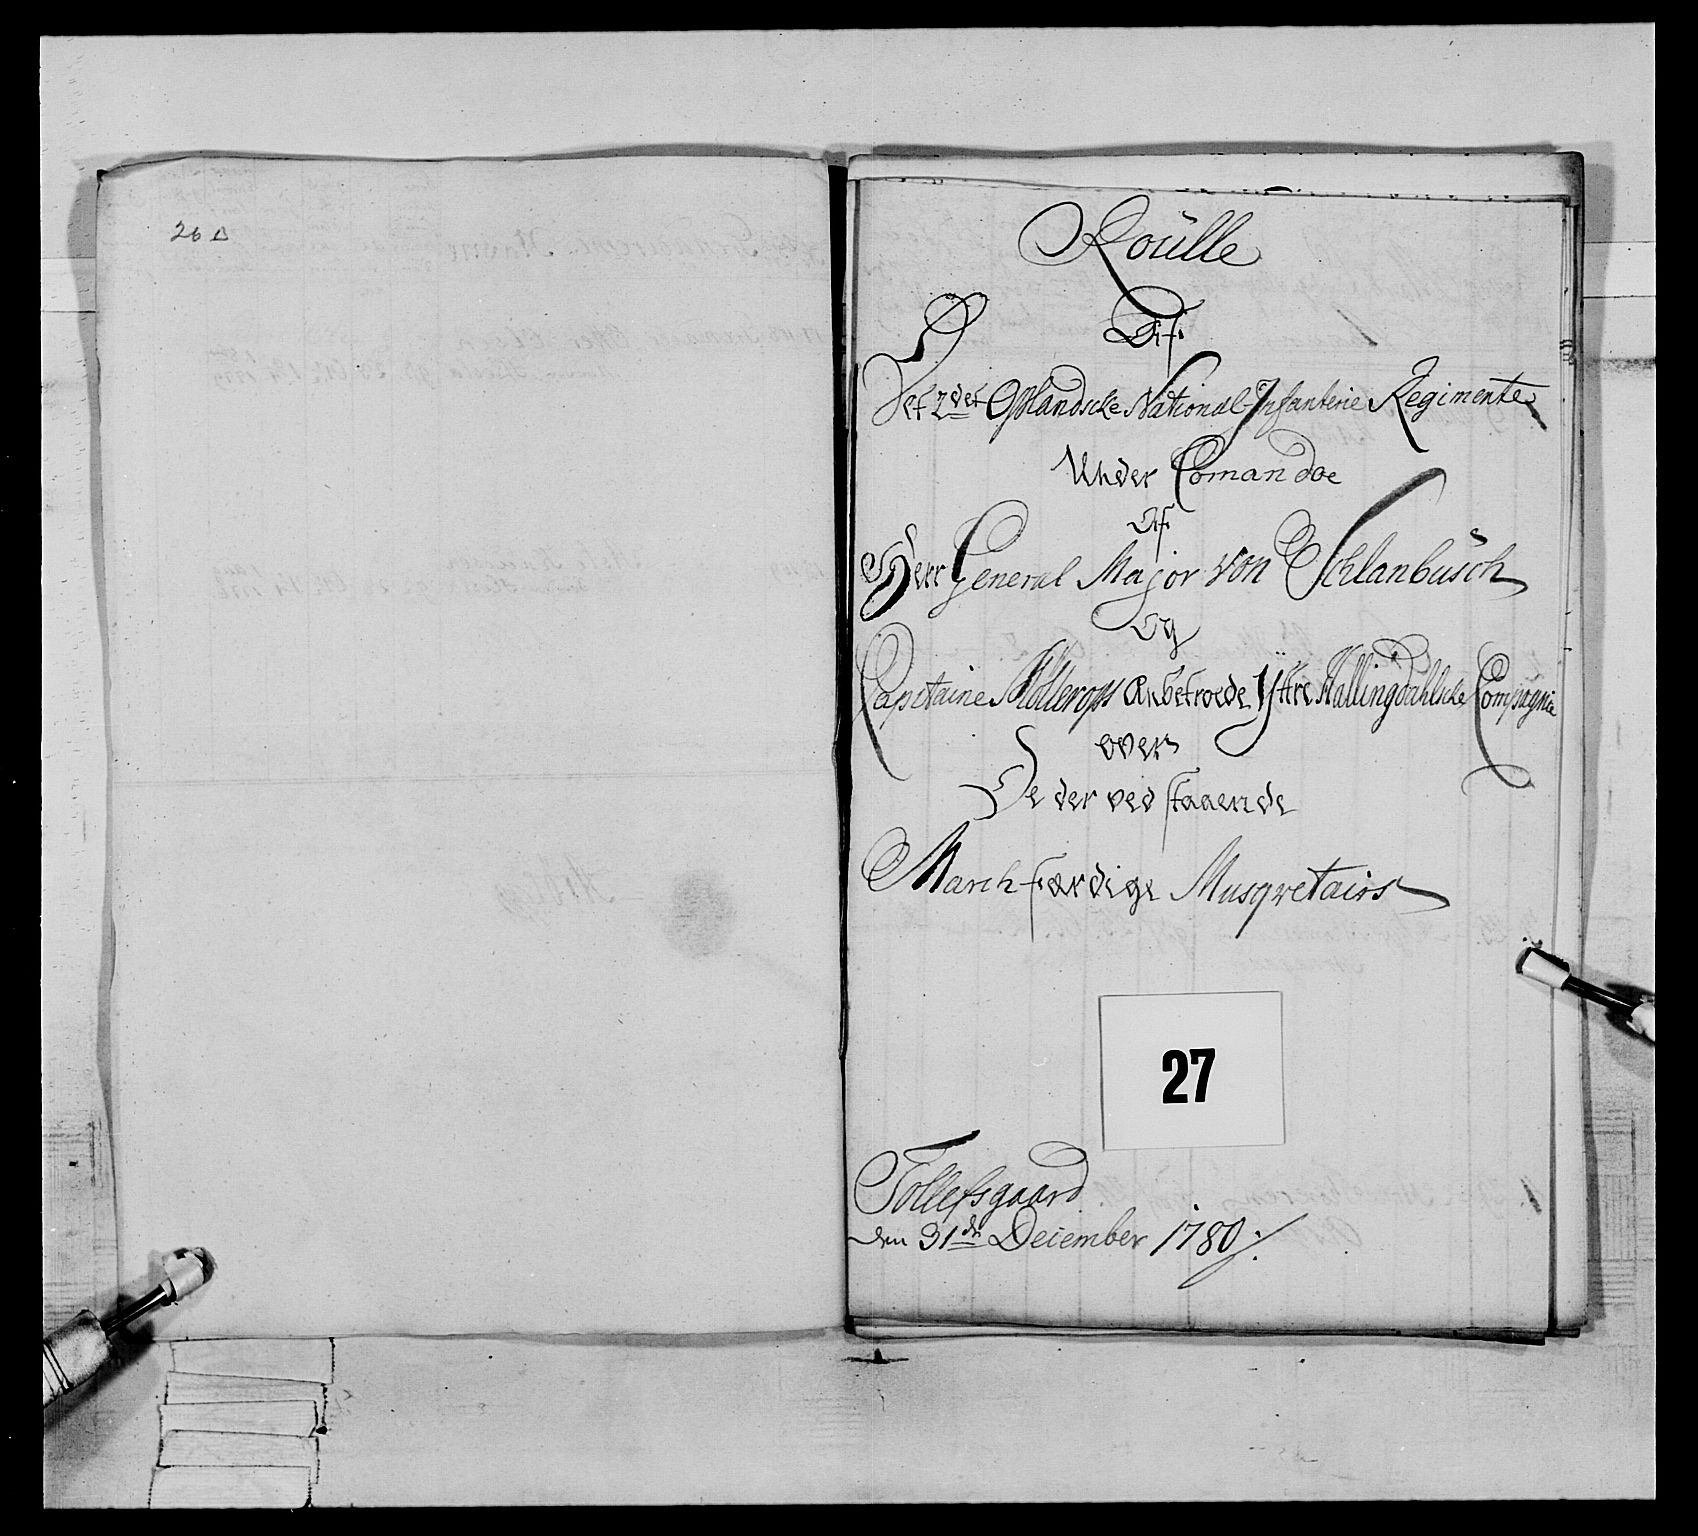 26 Δ
Roülle
Af
Det 2det Opländscke National-Infanterie Regimente
Under Comandoe
Af
Herr General Major von Schlanbüsch
Og
Capitaine Møllerops Anbetroede Ÿttre Hallingdahlscke Compagnie
over
De der ved staaende
March-færdige Musqvetairs
27
Tollefsgaard
den 31de December 1780